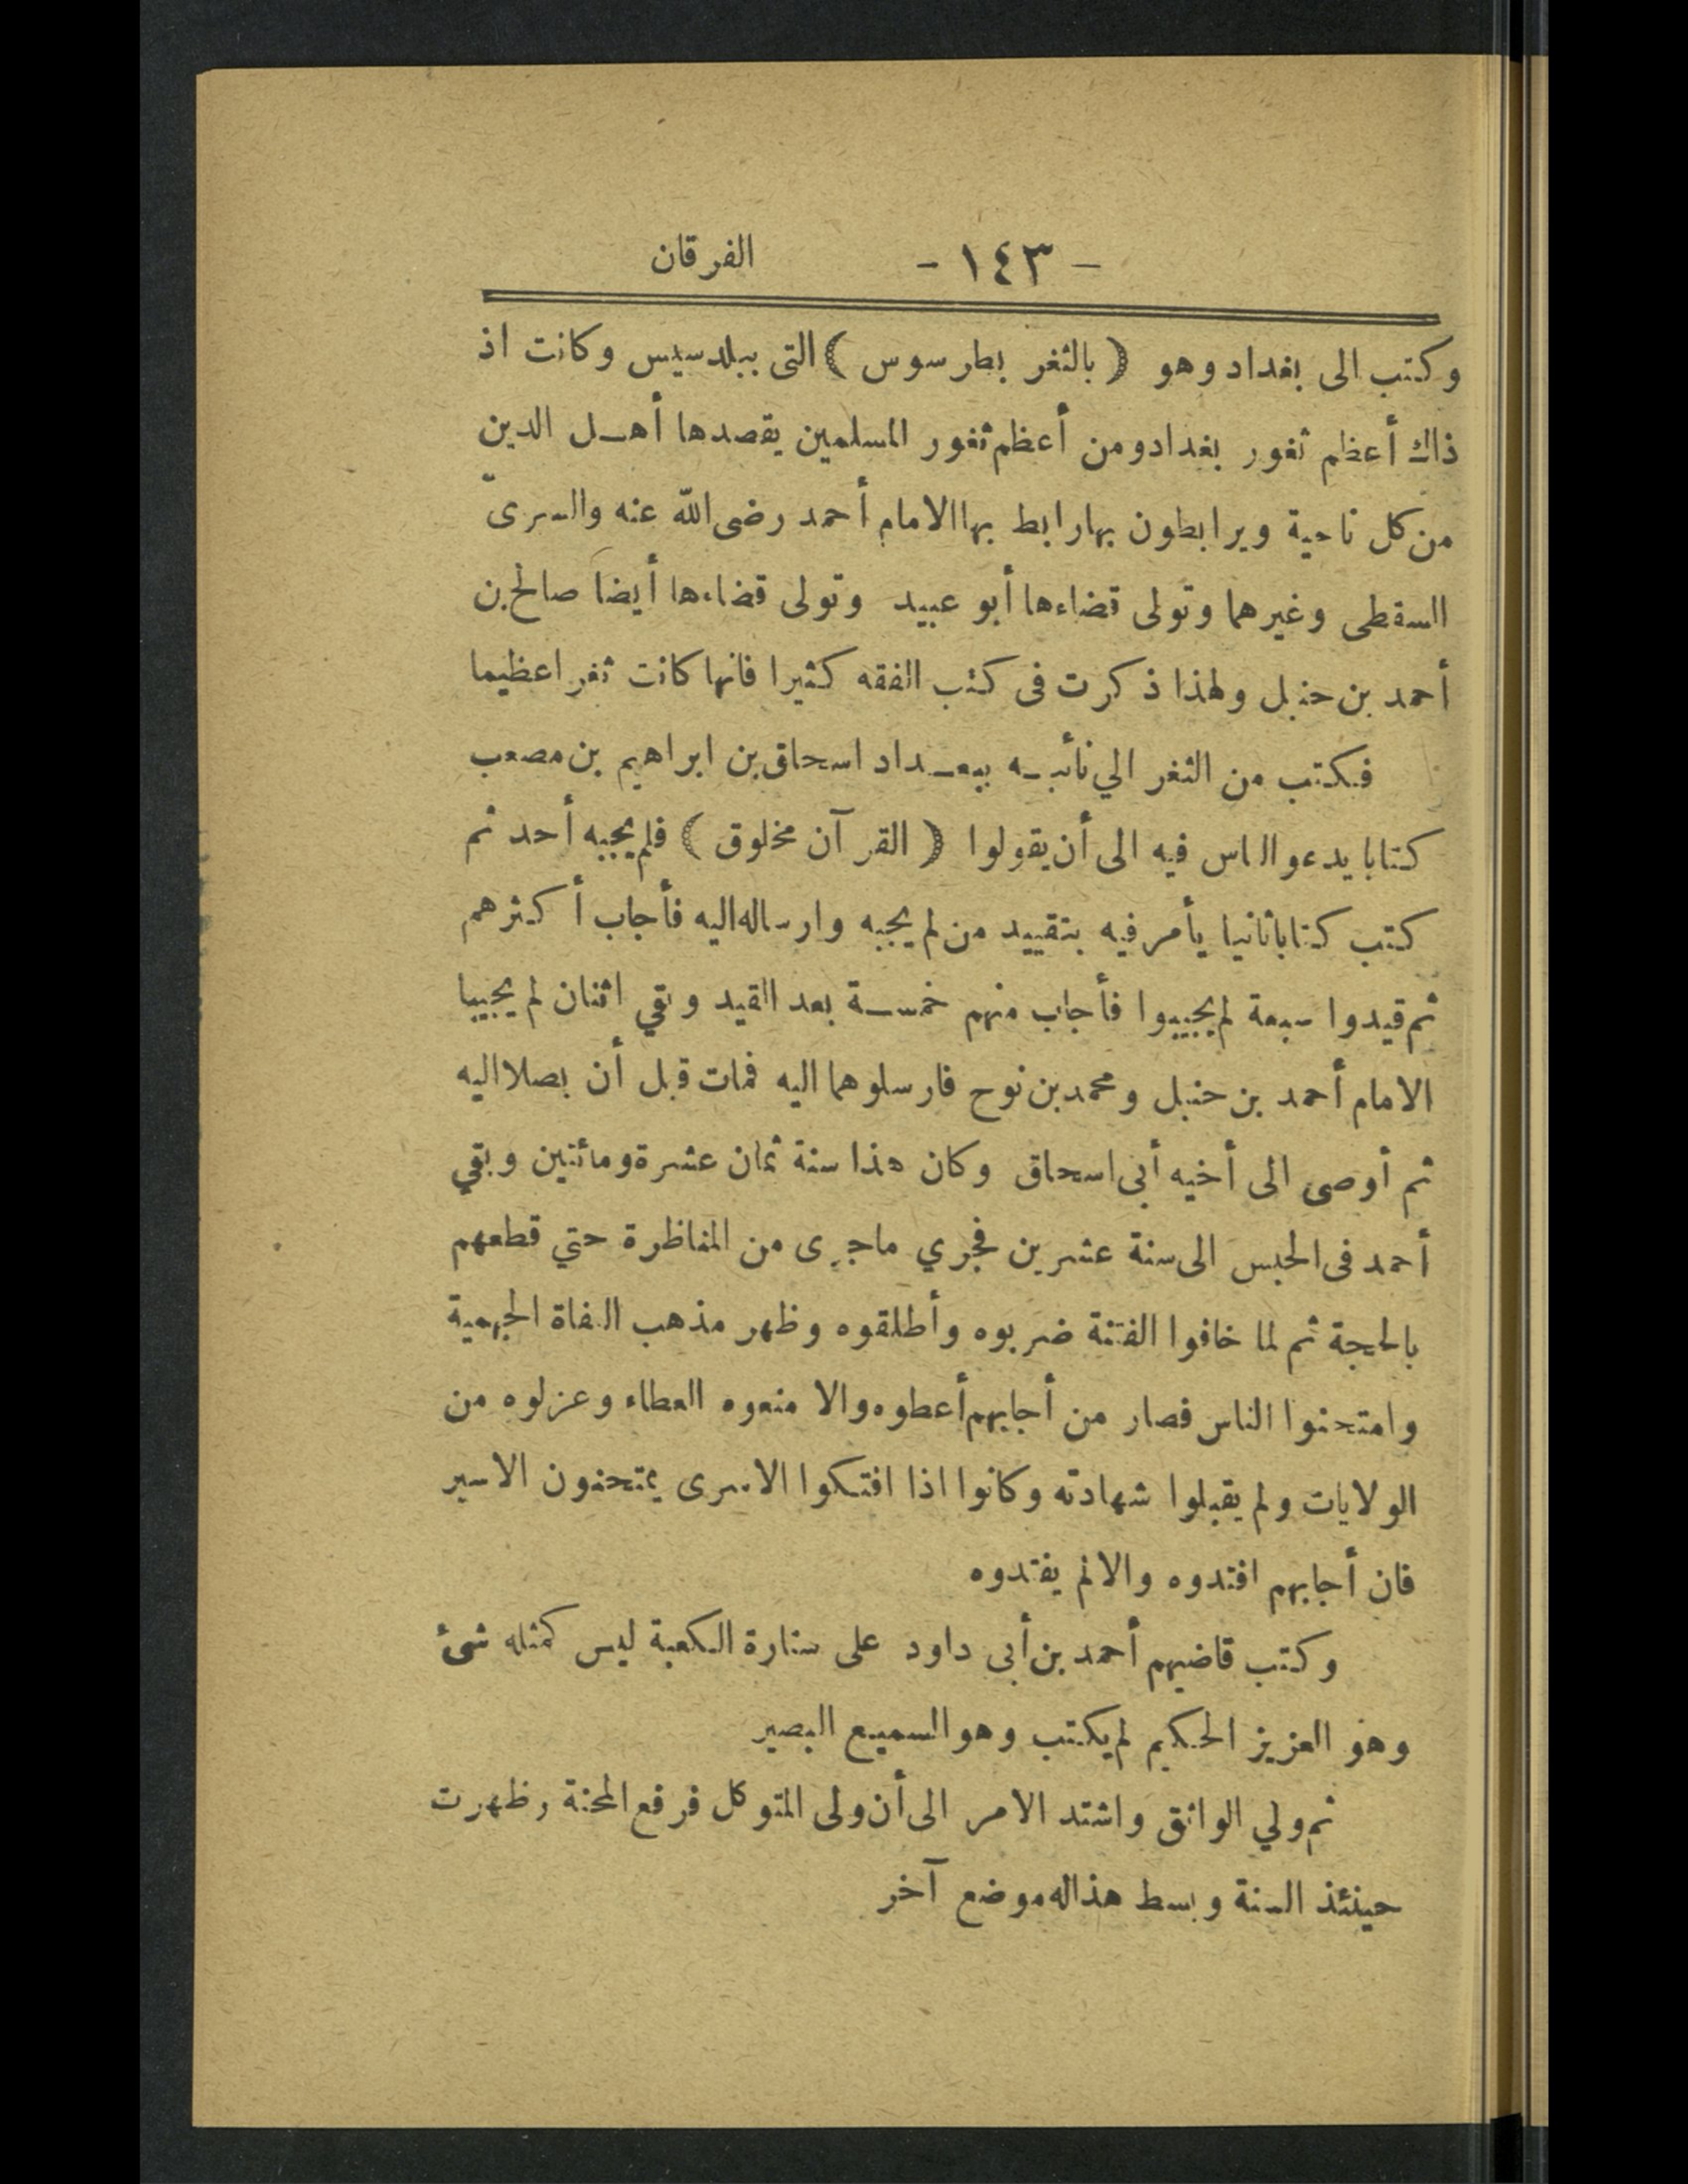 - ١٤٣ - الفرقان
وكتب الى بغداد وهو ( بالثغر بطرسوس ) التى ببلد سيس وكانت اذ
ذاك أعظم ثغور بغداد ومن أعظم ثغور المسلمين يقصدها أهل الدين
من كل ناحية ويرابطون بها رابط بها الامام أحمد رضى الله عنه والسرىّ
السقطى وغيرهما وتولى قضاءها أبو عبيد وتولى قضاءها أيضا صالح بن
أحمد بن حنبل ولهذا ذكرت فى كتب الفقه كثيرا فانها كانت ثغرا عظيما
فكتب من الثغر الي نائبه ببغداد اسحاق بن ابراهيم بن مصعب
كتابا يدعو الناس فيه الى أن يقولوا ( القرآن مخلوق ) فلم يجبه أحد ثم
كتب كتابا ثانيا يأمر فيه بتقييد من لم يجبه وارساله اليه فأجاب أكثرهم
ثم قيدوا سبعة لم يجيبوا فأجاب منهم خمسة بعد القيد وبقي اثنان لم يجيبا
الامام أحمد بن حنبل ومحمد بن نوح فارسلوهما اليه فمات قبل أن يصلا اليه
ثم أوصى الى أخيه أبى اسحاق وكان هذا سنة ثمان عشرة ومائتين وبقي
أحمد فى الحبس الى سنة عشرين فجري ماجرى من المناظرة حتي قطعهم
بالحجة ثم لما خافوا الفتنة ضربوه وأطلقوه وظهر مذهب النفاة الجهمية
وامتحنوا الناس فصار من أجابهم أعطوه والا منعوه العطاء وعزلوه من
الولايات ولم يقبلوا شهادته وكانوا اذا افتكوا الاسرى يمتحنون الاسير
فان أجابهم افتدوه والا لم يفتدوه
وكتب قاضيهم أحمد بن أبى داود على ستارة الكعبة ليس كمثله شئ
وهو العزيز الحكيم لم يكتب وهو السميع البصير
ثم ولي الواثق واشتد الامر الى أن ولى المتوكل فرفع المحنة وظهرت
حينئذ السنة وبسط هذا له موضع آخر